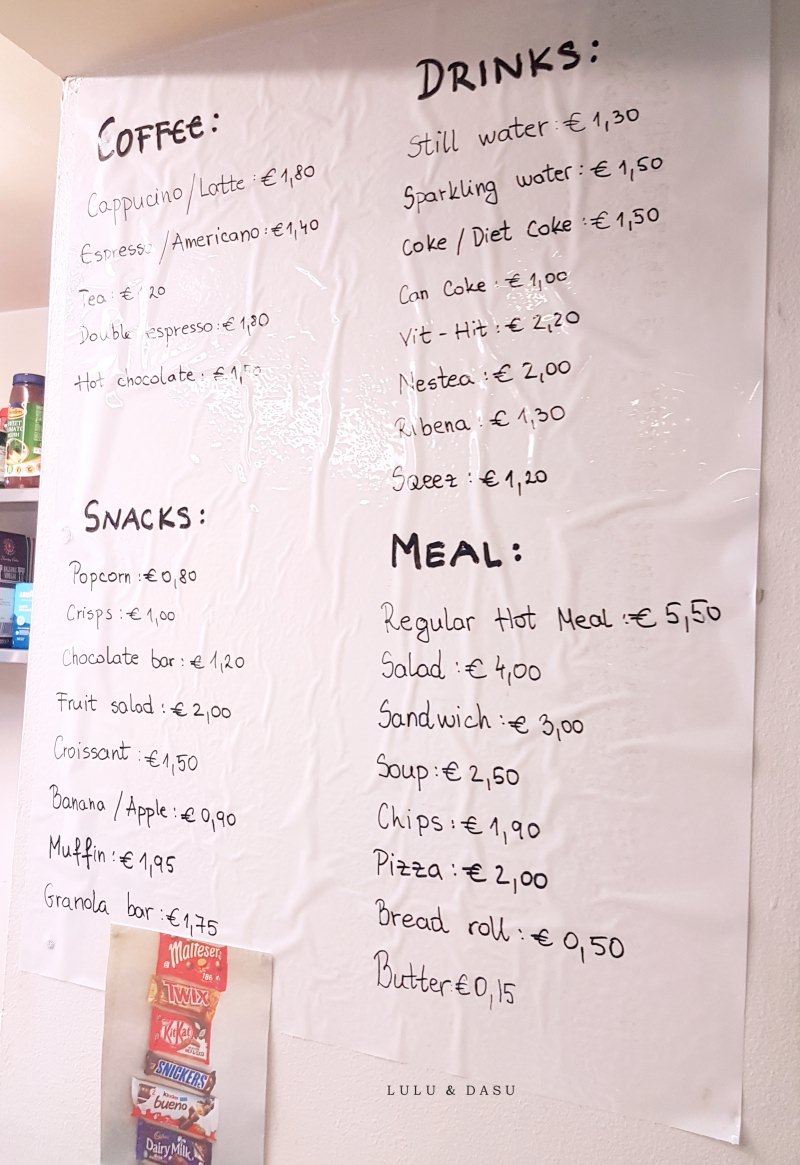 COFFEE:
Cappucino/Latte: €1,80
Espresso/Americano: €1,40
Tea: € 20
Double espresso: €1,80
Hot chocolate: €1,50
DRINKS:
Still water: € 1,30
Sparkling water: € 1,50
Coke / Diet Coke: € 1,50
Can Coke: € 1,00
Vit-Hit: € 2,20
Nestea: € 2,00
Ribena: € 1,30
Sqeez: € 1,20
SNACKS:
Popcorn: €0,80
Crisps: € 1,00
Chocolate bar: € 1,20
Fruit salad: € 2,00
Croissant: €1,50
Banana / Apple: € 0,90
Muffin: € 1,95
Granola bar: €1,75
MEAL:
Regular Hot Meal: € 5,50
Salad: € 4,00
Sandwich: € 3,00
Soup: € 2,50
Chips: € 1,90
Pizza: € 2,00
Bread roll: € 0,50
Butter €0,15
Maltesers
TWIX
KitKat
SNICKERS
kinder
bueno
Cadbury
Dairy Milk
LULU & DASU